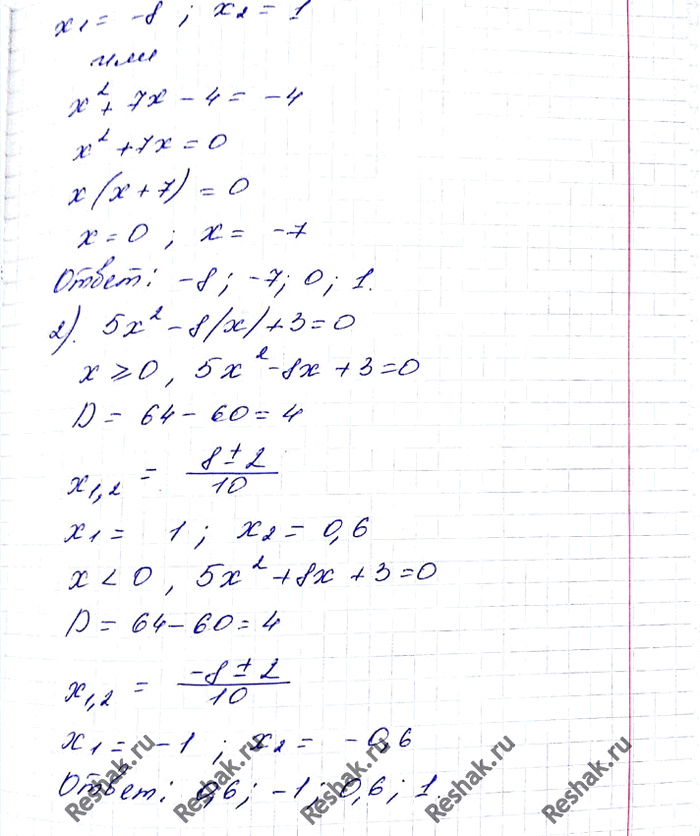 x₁ = -8 ; x₂ = 1
или
x² + 7x - 4 = -4
x² + 7x = 0
x(x+7) = 0
x = 0 ; x = -7
Ответ: -8; -7; 0; 1.
2). 5x² - 8|x| + 3 = 0
x ≥ 0, 5x² - 8x + 3 = 0
D = 64 - 60 = 4
x₁,₂ = (8 ± 2)/10
x₁ = 1 ; x₂ = 0,6
x < 0, 5x² + 8x + 3 = 0
D = 64 - 60 = 4
x₁,₂ = (-8 ± 2)/10
x₁ = -1 ; x₂ = -0,6
Ответ: 0,6; -1; 0,6; 1.
Reshak.ru
Reshak.ru
Reshak.ru
Reshak.ru
Reshak.ru